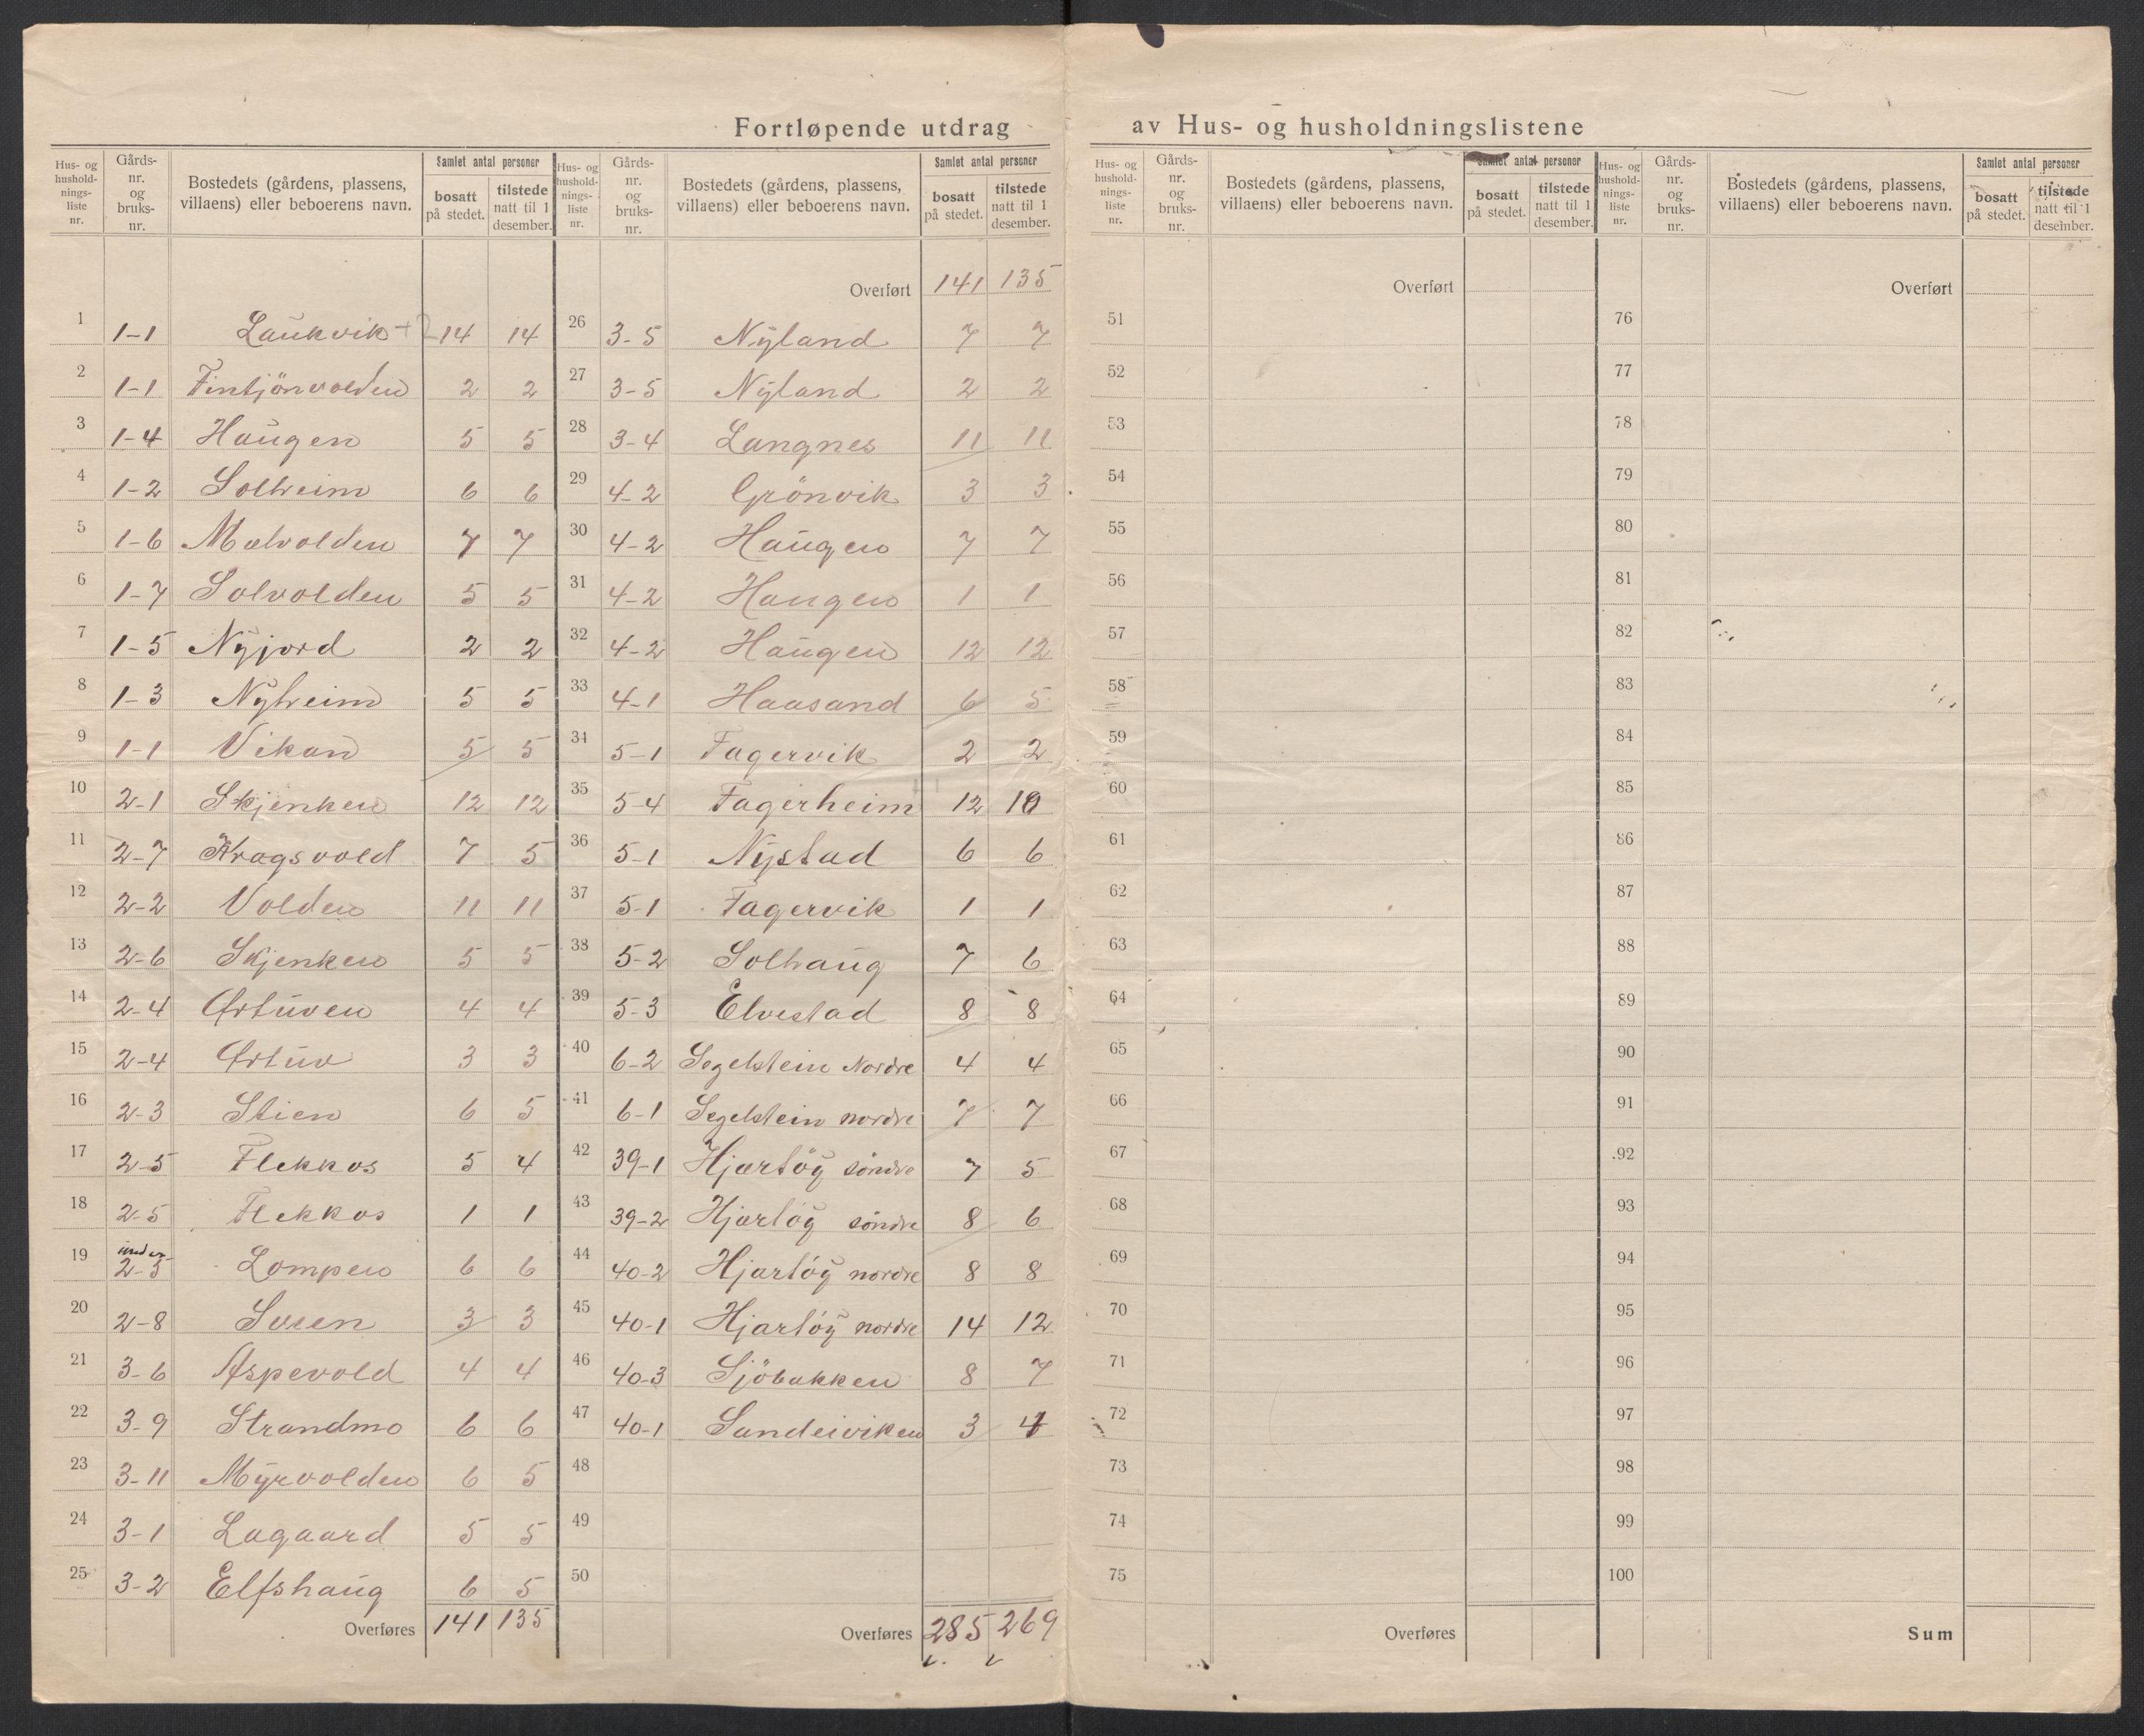 Fortløpende utdrag av Hus- og husholdningslistene
Hus- og husholdningsliste nr. | Gårds- nr. og bruks- nr. | Bostedets (gårdens, plassens, villaens) eller beboerens navn. | Samlet antal personer | bosatt på stedet. | tilstede natt til 1 desember.
1 1-1 Laukvik +2 14 14
2 1-1 Fintjönvolden 2 2
3 1-4 Haugen 5 5
4 1-2 Solheim 6 6
5 1-6 Mælvolden 7 7
6 1-7 Solvolden 5 5
7 1-5 Nyjord 2 2
8 1-3 Nyheim 5 5
9 1-1 Vikan 5 5
10 2-1 Skjenken 12 12
11 2-7 Kragsvold 7 5
12 2-2 Volden 11 11
13 2-6 Skjenken 5 5
14 2-4 Örtuven 4 4
15 2-4 Örtuv 3 3
16 2-3 Stien 6 5
17 2-5 Flekkos 5 4
18 2-5 Flekkos 1 1
19 under 2-5 Lompen 6 6
20 2-8 Sven 3 3
21 3-6 Aspevold 4 4
22 3-9 Strandmo 6 6
23 3-11 Myrvolden 6 5
24 3-1 Lagaard 5 5
25 3-2 Elfshaug 6 5
Overføres 141 135
Hus- og husholdnings- liste nr. | Gårds- nr. og bruks- nr. | Bostedets (gårdens, plassens, villaens) eller beboerens navn. | Samlet antal personer | bosatt på stedet. | tilstede natt til 1 desember.
Overført 141 135
26 3-5 Nyland 7 7
27 3-5 Nyland 2 2
28 3-4 Langnes 11 11
29 4-2 Grönvik 3 3
30 4-2 Haugen 7 7
31 4-2 Haugen 1 1
32 4-2 Haugen 12 12
33 4-1 Haasand 6 5
34 5-1 Fagervik 2 2
35 5-4 Fagerheim 12 10
36 5-1 Nystad 6 6
37 5-1 Fagervik 1 1
38 5-2 Solhaug 7 6
39 5-3 Elvestad 8 8
40 6-2 Segelstein Nordre 4 4
41 6-1 Segelstein nordre 7 7
42 39-1 Hjartöy söndre 7 5
43 39-2 Hjartöy söndre 8 6
44 40-2 Hjartöy nordre 8 8
45 40-1 Hjartöy nordre 14 12
46 40-3 Sjöbakken 8 7
47 40-1 Sandeiviken 3
48
49
50
Overføres 285 269
Hus- og husholdnings- liste nr. | Gårds- nr. og bruks- nr. | Bostedets (gårdens, plassens, villaens) eller beboerens navn. | Samlet antal personer | bosatt på stedet. | tilstede natt til 1 desember.
Overført
51
52
53
54
55
56
57
58
59
60
61
62
63
64
65
66
67
68
69
70
71
72
73
74
75
Overføres
Hus- og husholdnings- liste nr. | Gårds- nr. og bruks- nr. | Bostedets (gårdens, plassens, villaens) eller beboerens navn. | Samlet antal personer | bosatt på stedet. | tilstede natt til 1 desember.
Overført
76
77
78
79
80
81
82
83
84
85
86
87
88
89
90
91
92
93
94
95
96
97
98
99
100
Sum